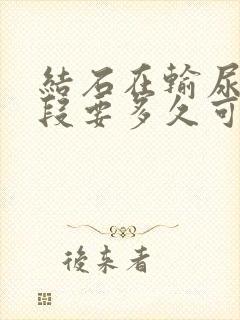 結石在輸尿
段要多久可
後来者